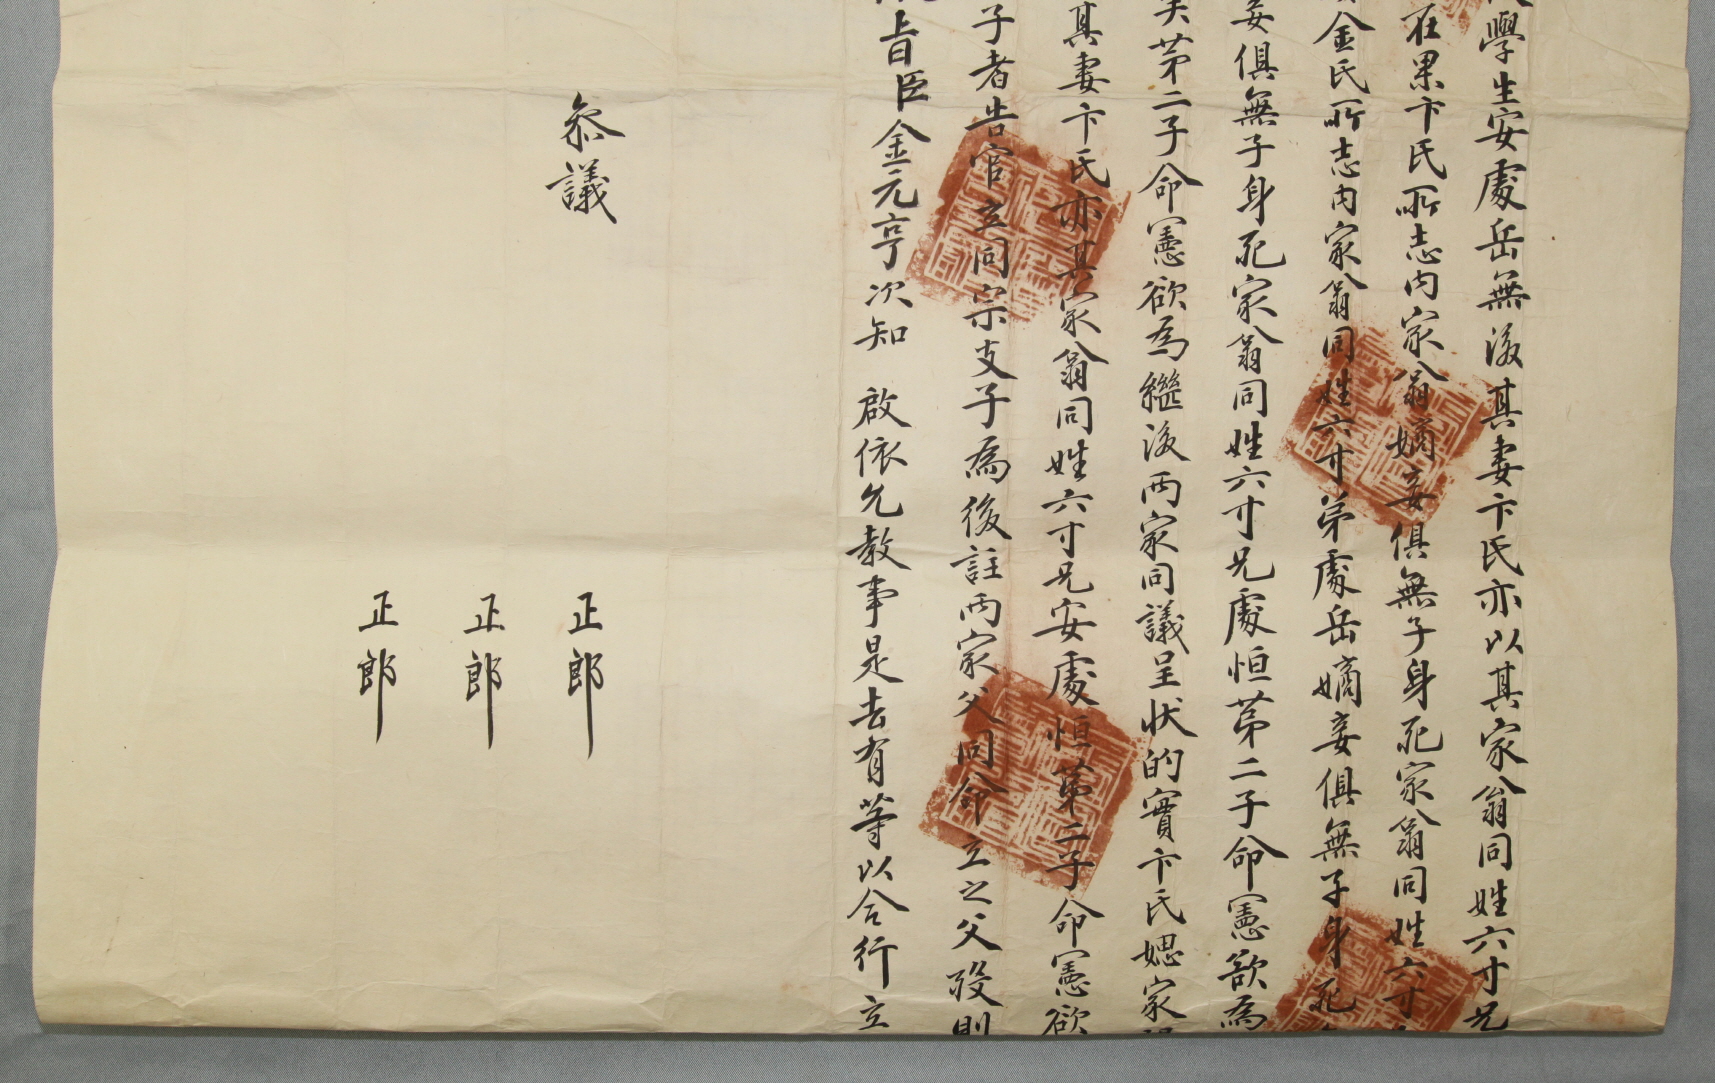 學生安處岳無後其妻卞氏亦以其家翁同姓六寸兄
在果卞氏所志內家翁嫡妾俱無子身死家翁同姓六寸
金氏所志內家翁同姓六寸弟處岳嫡妾俱無子身死
妾俱無子身死家翁同姓六寸兄處恒苐二子命憲欲爲
苐二子命憲欲爲繼後兩家同議呈狀的實卞氏媤家
其妻卞氏亦其家翁同姓六寸兄安處恒苐二子命憲欲
子者告官立同宗支子爲後註兩家父同命立之父歿則
旨臣金元亨次知 啟依允敎事是去有等以合行立
叅議
正郎
正郎
正郎